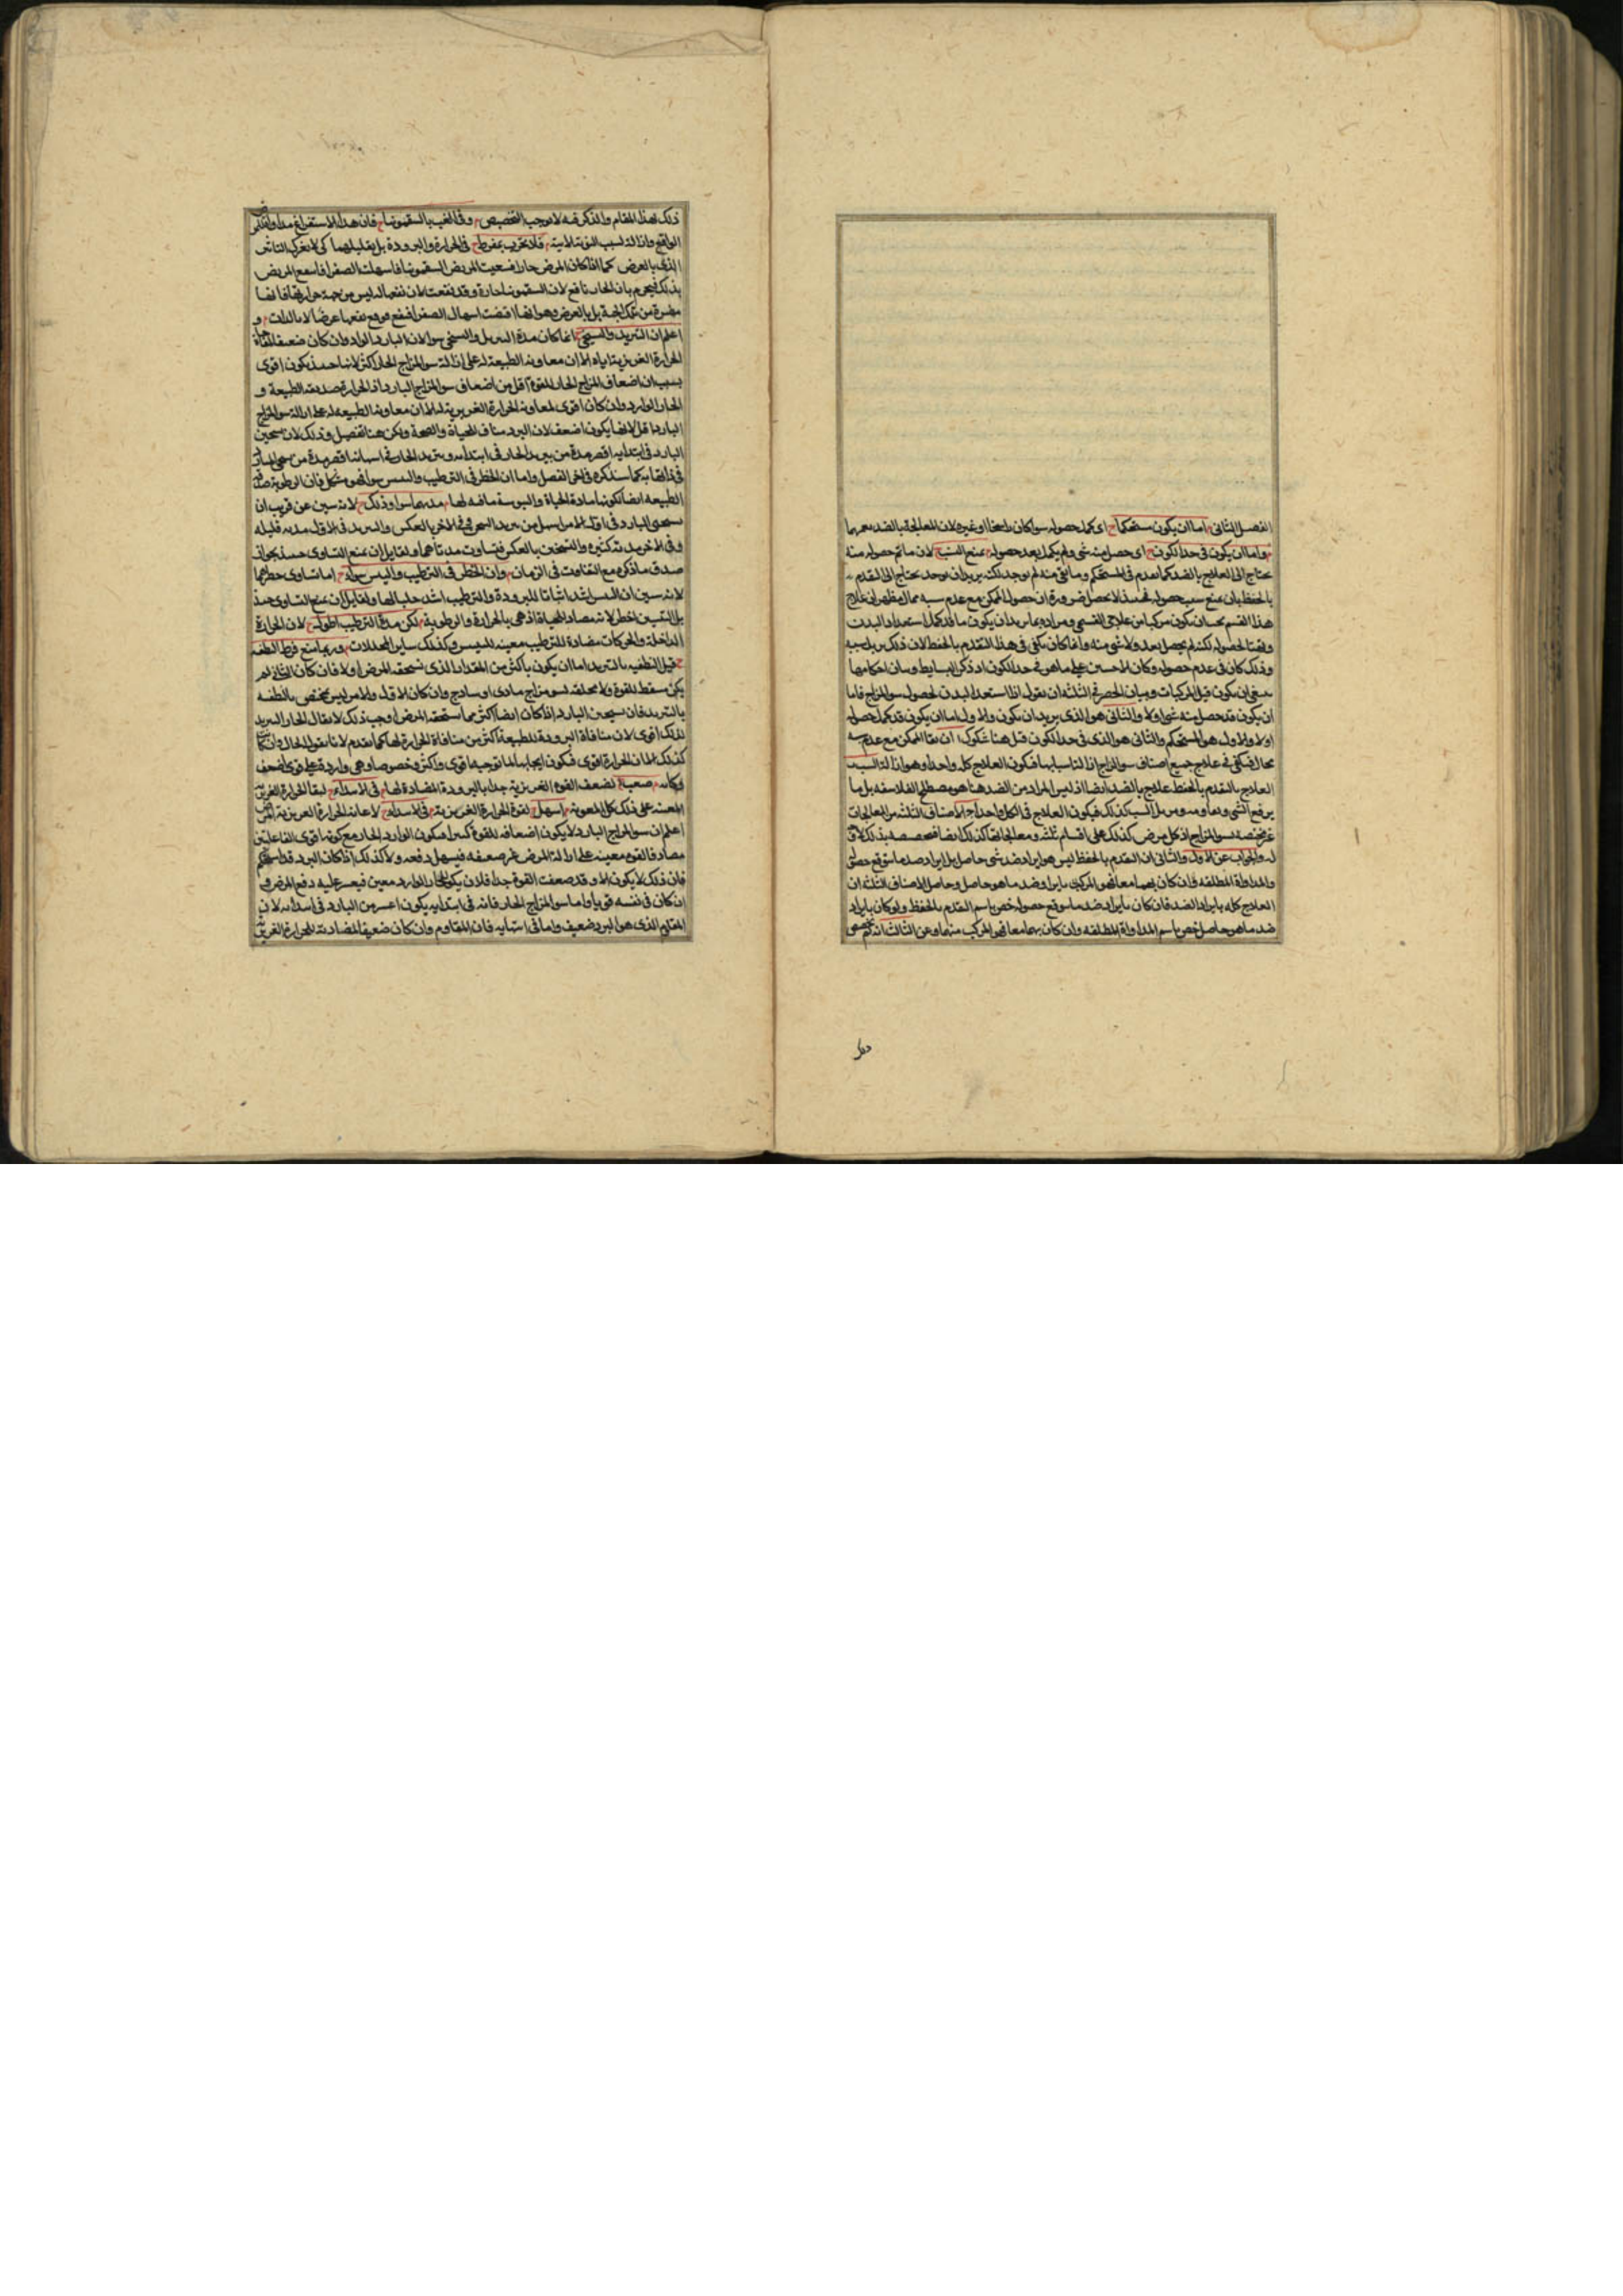 الفصل الثانى اما ان يكون مستحكما اى كمل حصوله سوا كان او غيره لان المعالجة بالضد
واما ان يكون فى حد الكون اى حصل منه شى ولم يكمل بعد حصوله بمنع السبب لان ما تم حصوله منه
يحتاج الى العلاج بالضد كما تقدم فى المستحكم وما بقى منه لم يوجد لكنه يريد ان يوجد يحتاج الى التقدم
بالحفظ بان يمنع سبب حصوله لا يحصل ضرورة ان حصول الممكن مع عدم سببه محال علاج
هذا القسم يجب ان يكون مركبا من علاجى القسمين ومراده بما يريد ان يكون ما قد كمل استعداد البدن
لحصوله لكنه لم يحصل بعد ولا شى منه وانما كان يكفى فى هذا التقدم بالحفظ لان ذلك يزيل سببه
وذلك كان فى عدم حصوله وكان الاحسن على ما هو فى حد الكون اذ ذكر البسايط وبيان احكامها
ينبغى ان يكون قبل المركبات وبيان الحصر فى الثلثة ان نقول اذا استعد البدن لحصول سو المزاج فاما
ان يكون قد حصل منه شى او لا والثانى هو الذى يريد ان يكون والاول اما ان يكون قد كمل حصوله
او لا والاول هو المستحكم والثانى هو الذى فى حد الكون قيل هنا شكوك ا ان بقا الممكن مع عدم سببه
محال فيكفى فى علاج جميع اصناف سو المزاج ازالة اسبابها فيكون العلاج كله واحدا وهو ازالة السبب
العلاج بالتقدم بالحفظ علاج بالضد ايضا اذ ليس المراد من الضد هنا هو مصطلح الفلاسفه بل ما
يرفع الشى السبب كذلك فيكون العلاج فى الكل واحدا ج الاصناف الثلثة من المعالجات
غير مختصه بسو المزاج اذ كل مرض كذلك على اقسام ثلثه ومعالجاتها كذلك ايضا فتخصيصه بذلك
له والجواب عن الاول والثانى ان التقدم بالحفظ ليس هو ايراد ضد شى حاصل بل ايراد ضد ما يتوقع حصوله
والمداواة المطلقه وان كان بهما معا فهو المركب ايراد ضد ما هو حاصل وحاصل الاصناف الثلثه ان
العلاج كله بايراد الضد فان كان بايراد ضد ما يتوقع حصوله خص باسم التقدم بالحفظ ولو كان بايراد
ضد ما هو حاصل خص باسم المداواة المطلقه وان كان بهما معا فهو المركب منهما وعن الثالث انه لم يخصص
ذلك بهذا المقام والذكر فيه لا يوجب التخصيص وفى الغب بالسقمونيا فان هذا الاستفراغ مداواة
الواقع وازالة لسبب فلا تخرب بمفرط فى الحرارة والبرودة بل بقليلهما كى لا يغرك التاثير
الذى بالعرض كما اذا كان المرض حارا فسقيت المريض السقمونيا فاسهلت الصفرا فانتفع المريض
بذلك فيجزم بان الحار نافع لان السقمونيا حارة وقد نفعت لان نفعها له ليس من جهة حرارتها فانها
مضرة من تلك الجهة بل بالعرض وهو انها اقتضت اسهال الصفرا فنفع فوقع نفعها عرضا لا بالذات و
اعلم ان التبريد والتسخين انما كان مدة التبريد والتسخين سوا لان البارد الوارد وان كان ضعيفا
الحرارة الغريزية اياه الا ان معاونة الطبيعة له على ازالة سو المزاج الحار اكثر لانها حينئذ تكون اقوى
بسبب ان اضعاف المزاج الحار للقوة اقل من اضعاف سو المزاج البارد اذ الحرارة صديقة الطبيعة و
الحار الوارد وان كان اقوى لمعاونة الحرارة الغريزية له الا ان معاونة الطبيعة له على ازالة سو المزاج
البارد اقل لانها يكون اضعف لان البرد مناف للحياة والصحة ولكن هنا تفصيل وذلك لان تسخين
البارد فى ابتدايه اقصر مدة من تبريد الحار فى ابتدايه وتبريد الحار فى انتهايه اقصر مدة من تسخين البارد
فى انتهايه كما سنذكره فى اخر الفصل واما ان الخطر فى الترطيب والتيبيس سوا فهو مشكل فان الرطوبة
الطبيعة ايضا لكونها مادة الحياة واليبوسة منافية لها مدتهما سوا وذلك لانه سيبين عن قريب ان
تسخين البارد فى اول الامر اسهل من تبريد السخن وفى الاخر بالعكس والتبريد فى الاول مدته قليله
وفى الاخر مدته كثيره والتسخين بالعكس فتساوت مدتاهما ولقايل ان يمنع التساوى حينئذ لجواز
صدق ما ذكره مع التفاوت فى الزمان وان الخطر فى الترطيب واليبس سوا اما تساوى خطرهما
لانه سيبين ان اليبس اشد اثباتا للبرودة والترطيب اشد جلبا لها ولقايل ان يمنع التساوى حينئذ
بل التيبيس اخطر لانه مضاد للحياة اذ هى بالحرارة والرطوبة لكن مدة الترطيب اطول لان الحرارة
الداخلة والحركات مضادة للترطيب معينه لليبس وكذلك ساير المحللات وربما منع فرط التطفيه
قيل التطفيه بالتبريد اما ان يكون باكثر من المقدار الذى يستحقه المرض او لا فان كان الثانى لم
يكن مسقطا للقوة ولا محلا لسو مزاج مادى او ساذج وان كان الاول والامر ليس يختص بالتطفيه
بالتبريد فان تسخين البارد اذا كان ايضا اكثر مما استحقه المرض اوجب ذلك لا يقال الحار التبريد
لذلك اقوى لان منافاة البرودة للطبيعة اكثر من منافاة الحرارة لها كما تقدم لانا نقول الحال وان كان
كذلك الا ان الحرارة اقوى فيكون ايجابها لما توجبه اقوى واكثر وخصوصا وهى واردة على قوى اضعف
وكان صعبا لضعف القوة الغريزية جدا بالبرودة المضادة لها فى الابتداء لبقا الحرارة الغريزية
المعينه على ذلك كل المعونه اسهل لقوة الحرارة الغريزية فى الابتداء لاعانة الحرارة الغريزية
اعلم ان سو المزاج البارد لا يكون اضعافه للقوة كبيرا فيكون الوارد الحار مع كونه اقوى الفاعلين
مصادفا لقوة معينه على ازالة المرض غير ضعيفه فيسهل دفعه ولا كذلك اذا كان البرد قد استحكم
فان ذلك لا يكون الا وقد ضعفت القوة جدا فلان يكون للحار الوارد معين فيعسر عليه دفع المرض و
ان كان فى نفسه قويا واما سو المزاج الحار فانه فى ابتدايه يكون اعسر من البارد فى ابتدايه لان
المقاوم الذى هو البرد ضعيف واما فى انتهايه فان المقاوم وان كان ضعيفا لمضادته للحرارة الغريزية